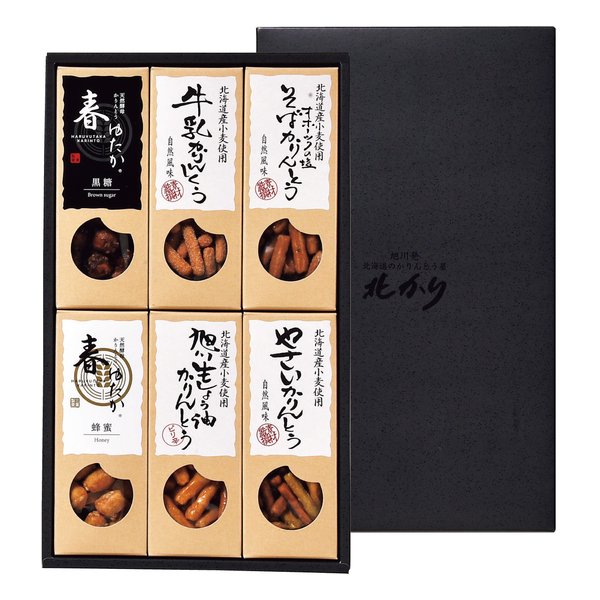 天然酵母
かりんとう
春ゆたか。
HARUYUTAKA
KARINTO
黒糖
Brown sugar
北海道産小麦使用
牛乳かりんとう
自然風味
北海道産小麦使用
オホーツクの塩
そばかりんとう
自然風味
天然酵母
春ゆたか。
蜂蜜
Honey
北海道産小麦使用
旭川生しょうゆ
かりんとう
ピリ辛
北海道産小麦使用
やさいかりんとう
自然風味
旭川発
北海道のかりんとう屋
北かり